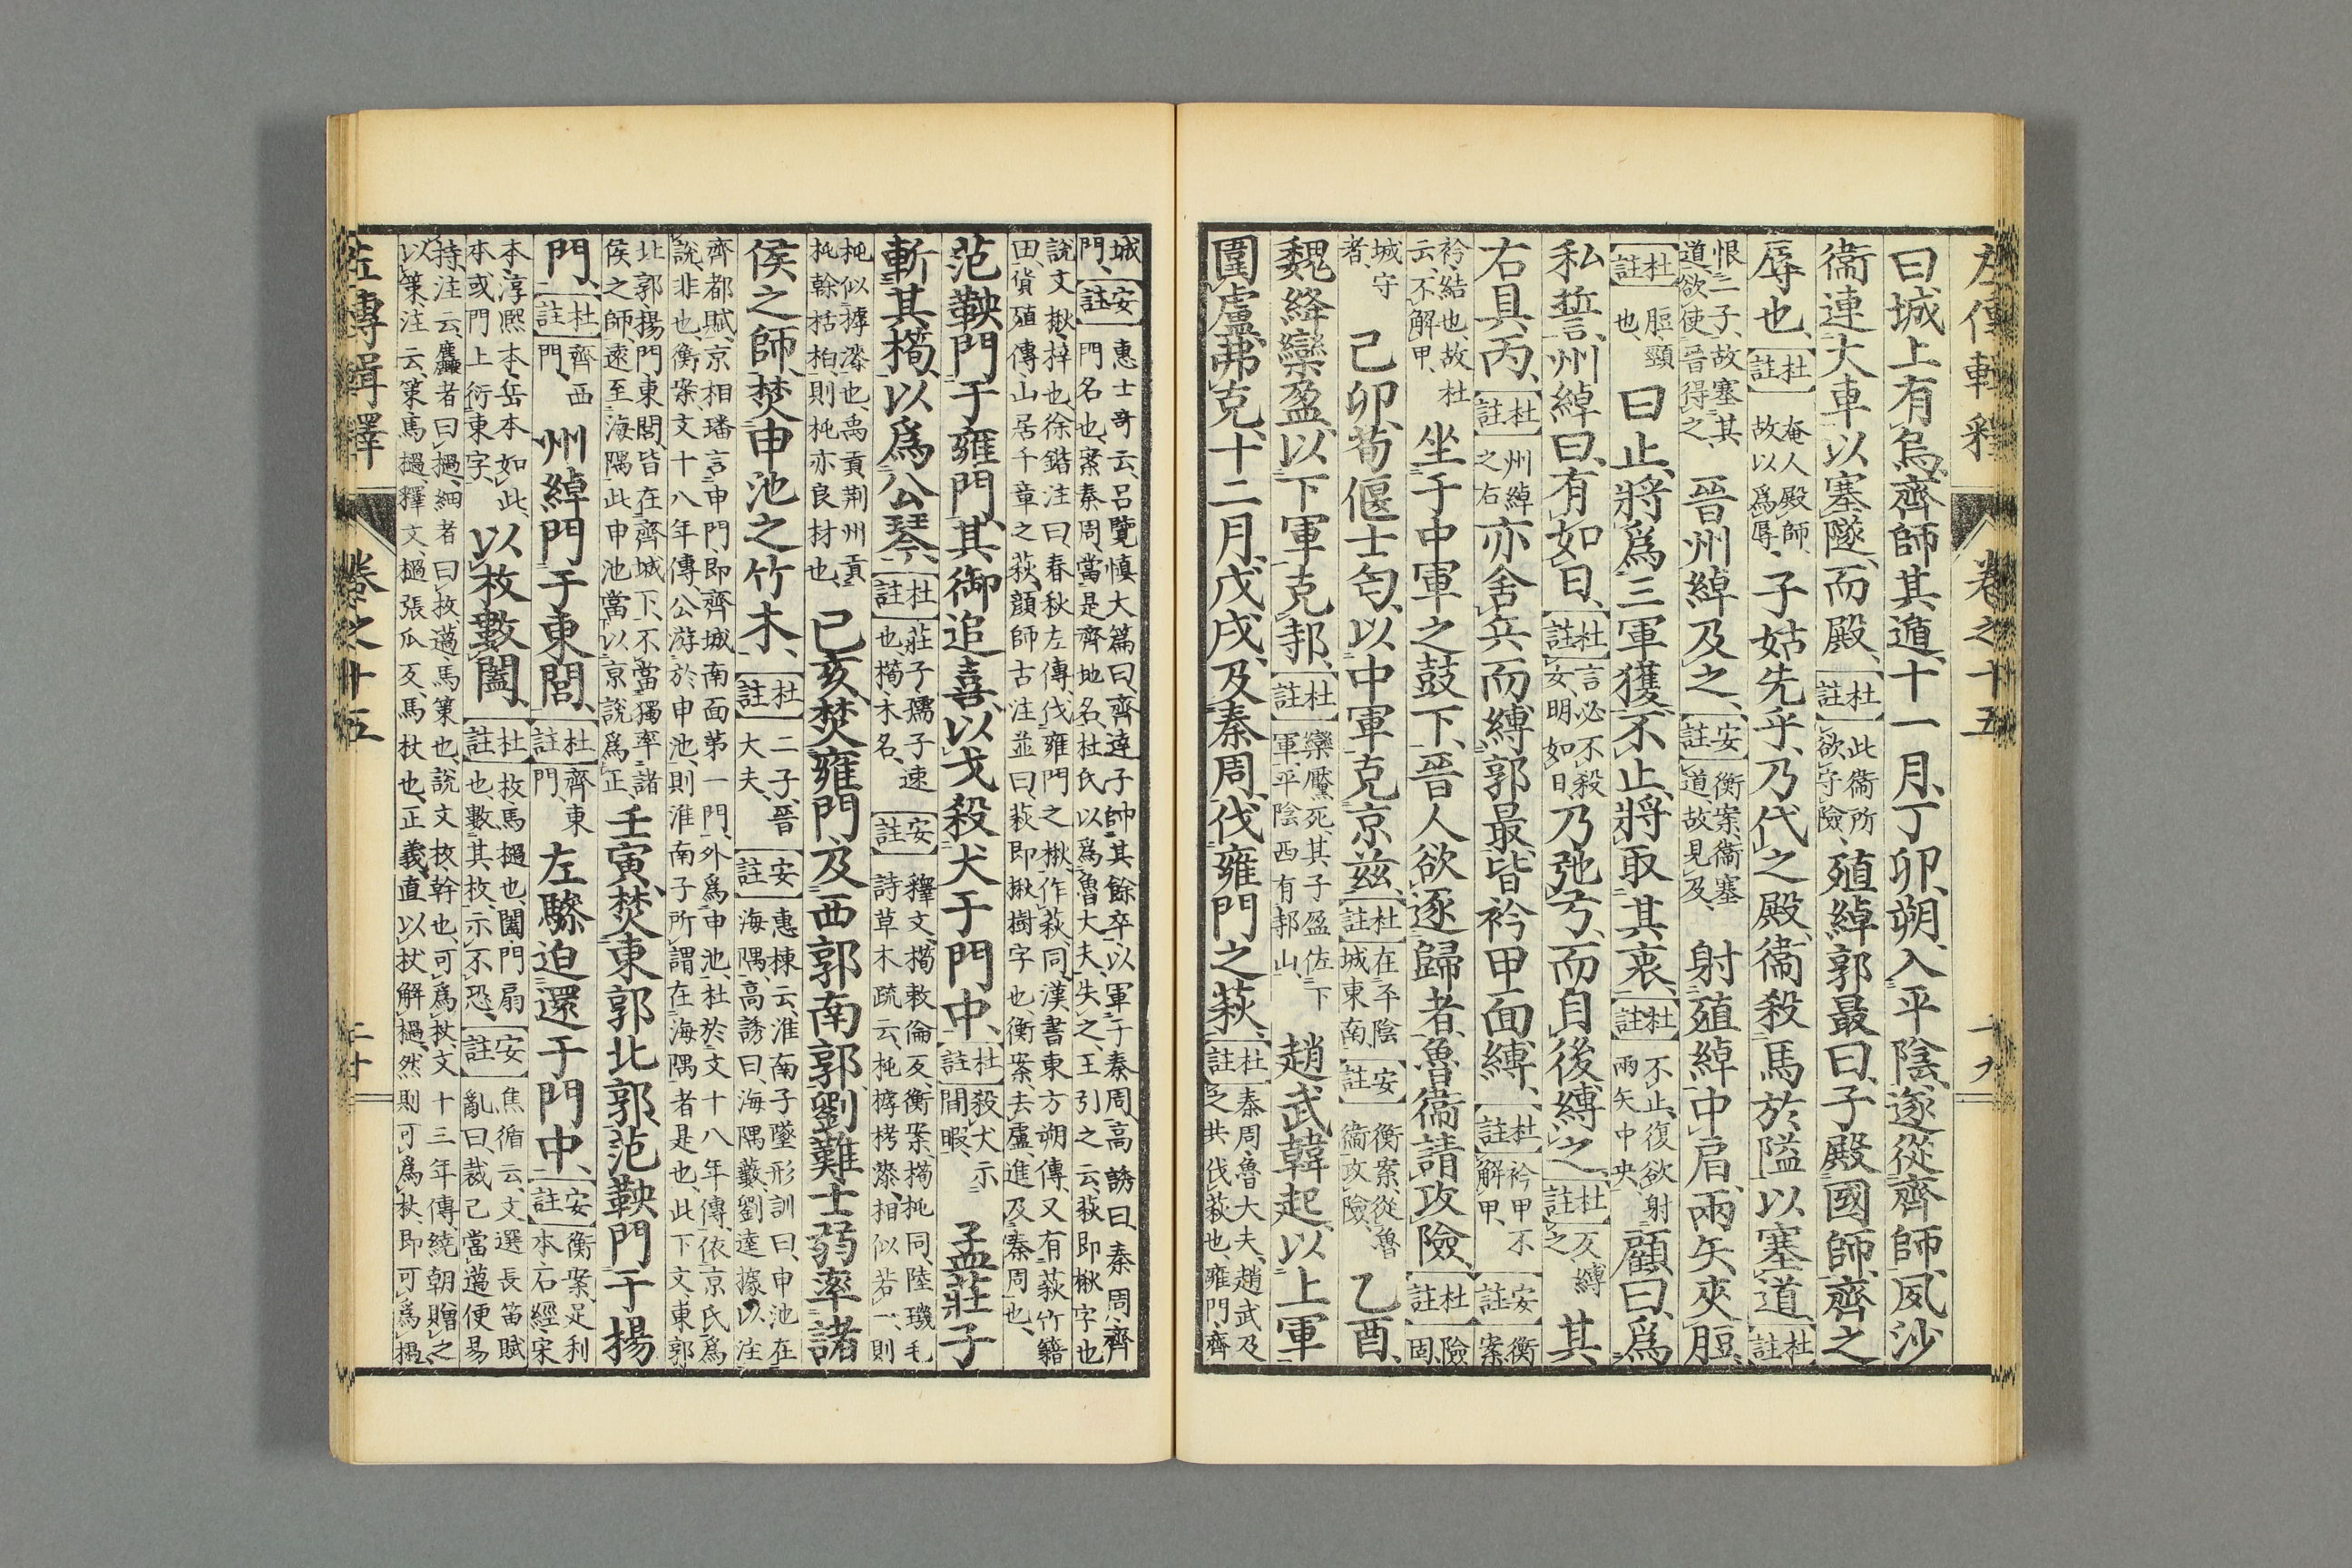 左傳輯釋 卷之十五 十九
曰、城上有烏、齊師其遁、十一月、丁卯、朔、入平陰、遂從齊師、夙沙
衞連大車、以塞隧、而殿、【杜註】此衞所欲守險、殖綽郭最曰、子殿國師、齊之
辱也、【杜註】奄人殿師、故以爲辱、子姑先乎、乃代之殿、衞殺馬於隘以塞道、【杜註】
恨二子、故塞其道、欲使晉得之、晉州綽及之、【安註】衡案、衞塞道、故見及、射殖綽中肩、兩矢夾脰、
【杜註】脰、頸也、曰、止、將爲三軍獲、不止、將取其衷、【杜註】不止、復欲射兩矢中央、顧曰、爲
私誓、州綽曰、有如日、【杜註】言必不殺女、明如日、乃弛弓、而自後縛之、【杜註】反縛之、其
右具丙、【杜註】州綽之右亦舍兵而縛郭最、皆衿甲面縛、【杜註】衿甲不解甲、【安註】衡案、
衿、結也、故杜云、不解甲、坐于中軍之鼓下、晉人欲逐歸者、魯衞請攻險、【杜註】險固、
城守者、己卯、荀偃士匄、以中軍克京茲、【杜註】在平陰城東南【安註】衡案、從魯衞攻險、乙酉、
魏絳欒盈、以下軍克邿、【杜註】欒黶死、其子盈佐下軍、平陰西有邿山、趙武韓起、以上軍
圍盧、弗克、十二月、戊戌、及秦周、伐雍門之萩、【杜註】秦周、魯大夫、趙武及之共伐萩也、雍門、齊
城門、【安註】惠士奇云、呂覽愼大篇曰、齊達子帥其餘卒、以軍于秦周、高誘曰、秦周、齊門名也、案秦周、當是齊地名、杜氏以爲魯大夫、失之、王引之云、萩即楸字也
說文、楸、梓也、徐鍇注曰、春秋左傳、伐雍門之楸、作萩、同、漢書東方朔傳、又有萩竹籍田、貨殖傳山居千章之萩、顔師古注並曰、萩即楸樹字也、衡案、去盧、進及秦周也、
范鞅門于雍門、其御追喜、以戈殺犬于門中、【杜註】殺犬示閒暇、孟莊子
斬其橁、以爲公琴、【杜註】莊子、孺子速也、橁、木名、【安註】釋文、橁敕倫反、衡案、橁杶同、陸璣毛詩草木疏云、杶樗栲漆、相似若一、則
杶似樗漆也、禹貢、荆州貢杶榦栝柏、則杶亦良材也、己亥、焚雍門、及西郭南郭、劉難士弱率諸
侯之師、焚申池之竹木、【杜註】二子、晉大夫、【安註】惠棟云、淮南子墬形訓曰、申池在海隅、高誘曰、海隅藪、劉逵據以注
齊都賦、京相璠言、申門、即齊城南面第一門、外爲申池、杜於文十八年傳、依京氏爲說、非也、衡案、文十八年傳、公游於申池、則淮南子所謂在海隅者是也、此下文、東郭
北郭、揚門、東閭、皆在齊城下、不當獨率諸侯之師、遠至海隅、此申池當以京說爲正、壬寅、焚東郭北郭、范鞅門于揚
門、【杜註】齊西門、州綽門于東閭、【杜註】齊東門、左驂迫還于門中、【安註】衡案、足利本、石經宋
本、淳熙本、岳本如此、本或門上衍東字、以枚數闔、【杜註】枚、馬檛也、闔、門扇也、數其枚、示不恐、【安註】焦循云、文選長笛賦亂曰、裁已當簻便易
持、注云、麤者曰檛、細者曰枚、簻馬策也、說文枚、幹也、可爲杖、文十三年傳、繞朝贈之
以策、注云、策馬檛、釋文、檛張瓜反、馬杖也、正義直以杖解檛、然則可爲杖、即可爲檛、
左傳輯釋 卷之十五 二十